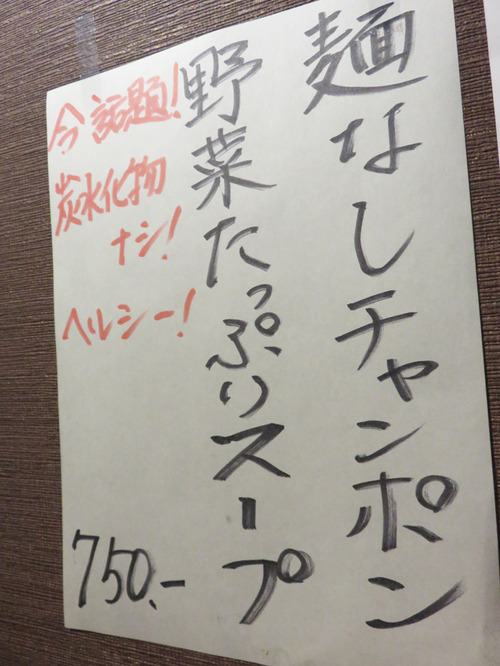 麺なしチャンポン
野菜たっぷりスープ
今話題!
炭水化物
ナシ!
ヘルシー!
750.-